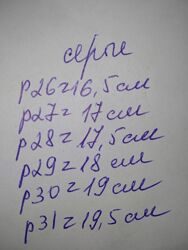 серые
р26=16,5см
р27=17см
р28=17,5см
р29=18 см
р30=19см
р31=19,5см